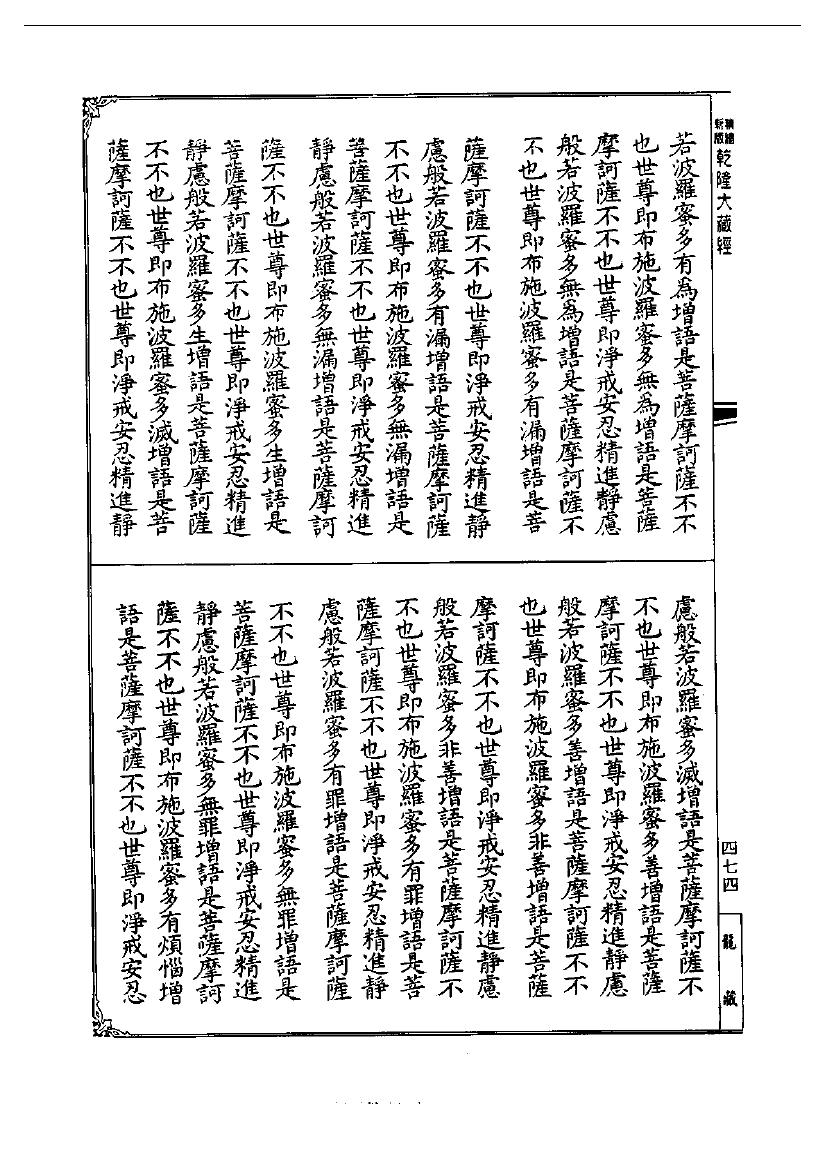 乾隆大藏經
若波羅蜜多有為增語是菩薩摩訶薩不不
也世尊即布施波羅蜜多無為增語是菩薩
摩訶薩不不也世尊即淨戒安忍精進靜慮
般若波羅蜜多無為增語是菩薩摩訶薩不
不也世尊即布施波羅蜜多有漏增語是菩
薩摩訶薩不不也世尊即淨戒安忍精進靜
慮般若波羅蜜多有漏增語是菩薩摩訶薩
不不也世尊即布施波羅蜜多無漏增語是
菩薩摩訶薩不不也世尊即淨戒安忍精進
靜慮般若波羅蜜多無漏增語是菩薩摩訶
薩不不也世尊即布施波羅蜜多生增語是
菩薩摩訶薩不不也世尊即淨戒安忍精進
靜慮般若波羅蜜多生增語是菩薩摩訶薩
不不也世尊即布施波羅蜜多滅增語是菩
薩摩訶薩不不也世尊即淨戒安忍精進靜
慮般若波羅蜜多滅增語是菩薩摩訶薩不
不也世尊即布施波羅蜜多善增語是菩薩
摩訶薩不不也世尊即淨戒安忍精進靜慮
般若波羅蜜多善增語是菩薩摩訶薩不不
也世尊即布施波羅蜜多非善增語是菩薩
摩訶薩不不也世尊即淨戒安忍精進靜慮
般若波羅蜜多非善增語是菩薩摩訶薩不
不也世尊即布施波羅蜜多有罪增語是菩
薩摩訶薩不不也世尊即淨戒安忍精進靜
慮般若波羅蜜多有罪增語是菩薩摩訶薩
不不也世尊即布施波羅蜜多無罪增語是
菩薩摩訶薩不不也世尊即淨戒安忍精進
靜慮般若波羅蜜多無罪增語是菩薩摩訶
薩不不也世尊即布施波羅蜜多有煩惱增
語是菩薩摩訶薩不不也世尊即淨戒安忍
四七四
龍藏